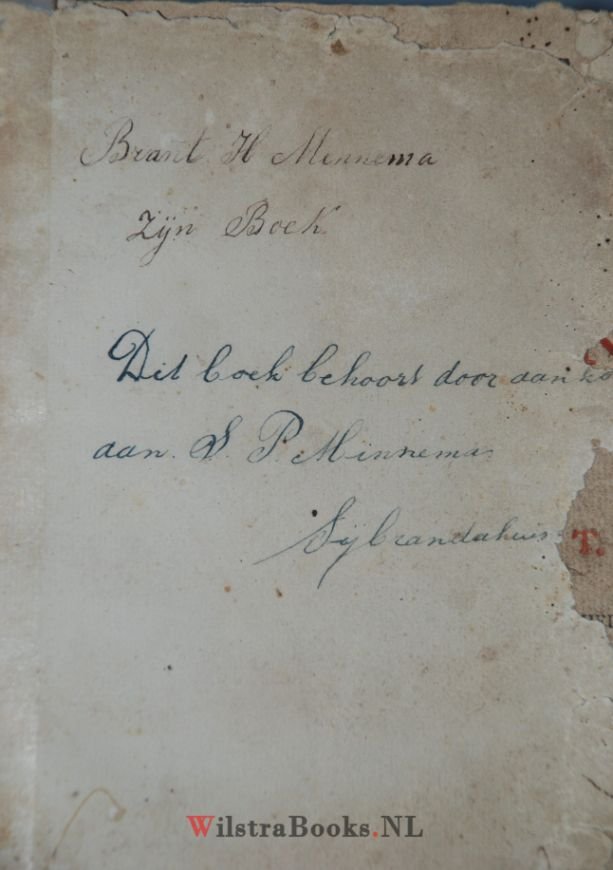 Brant H Minnema
Zijn Boek
Dit boek behoort door aanko
aan S. P. Minnema
Sijbrandahuis
T.
WilstraBooks.NL